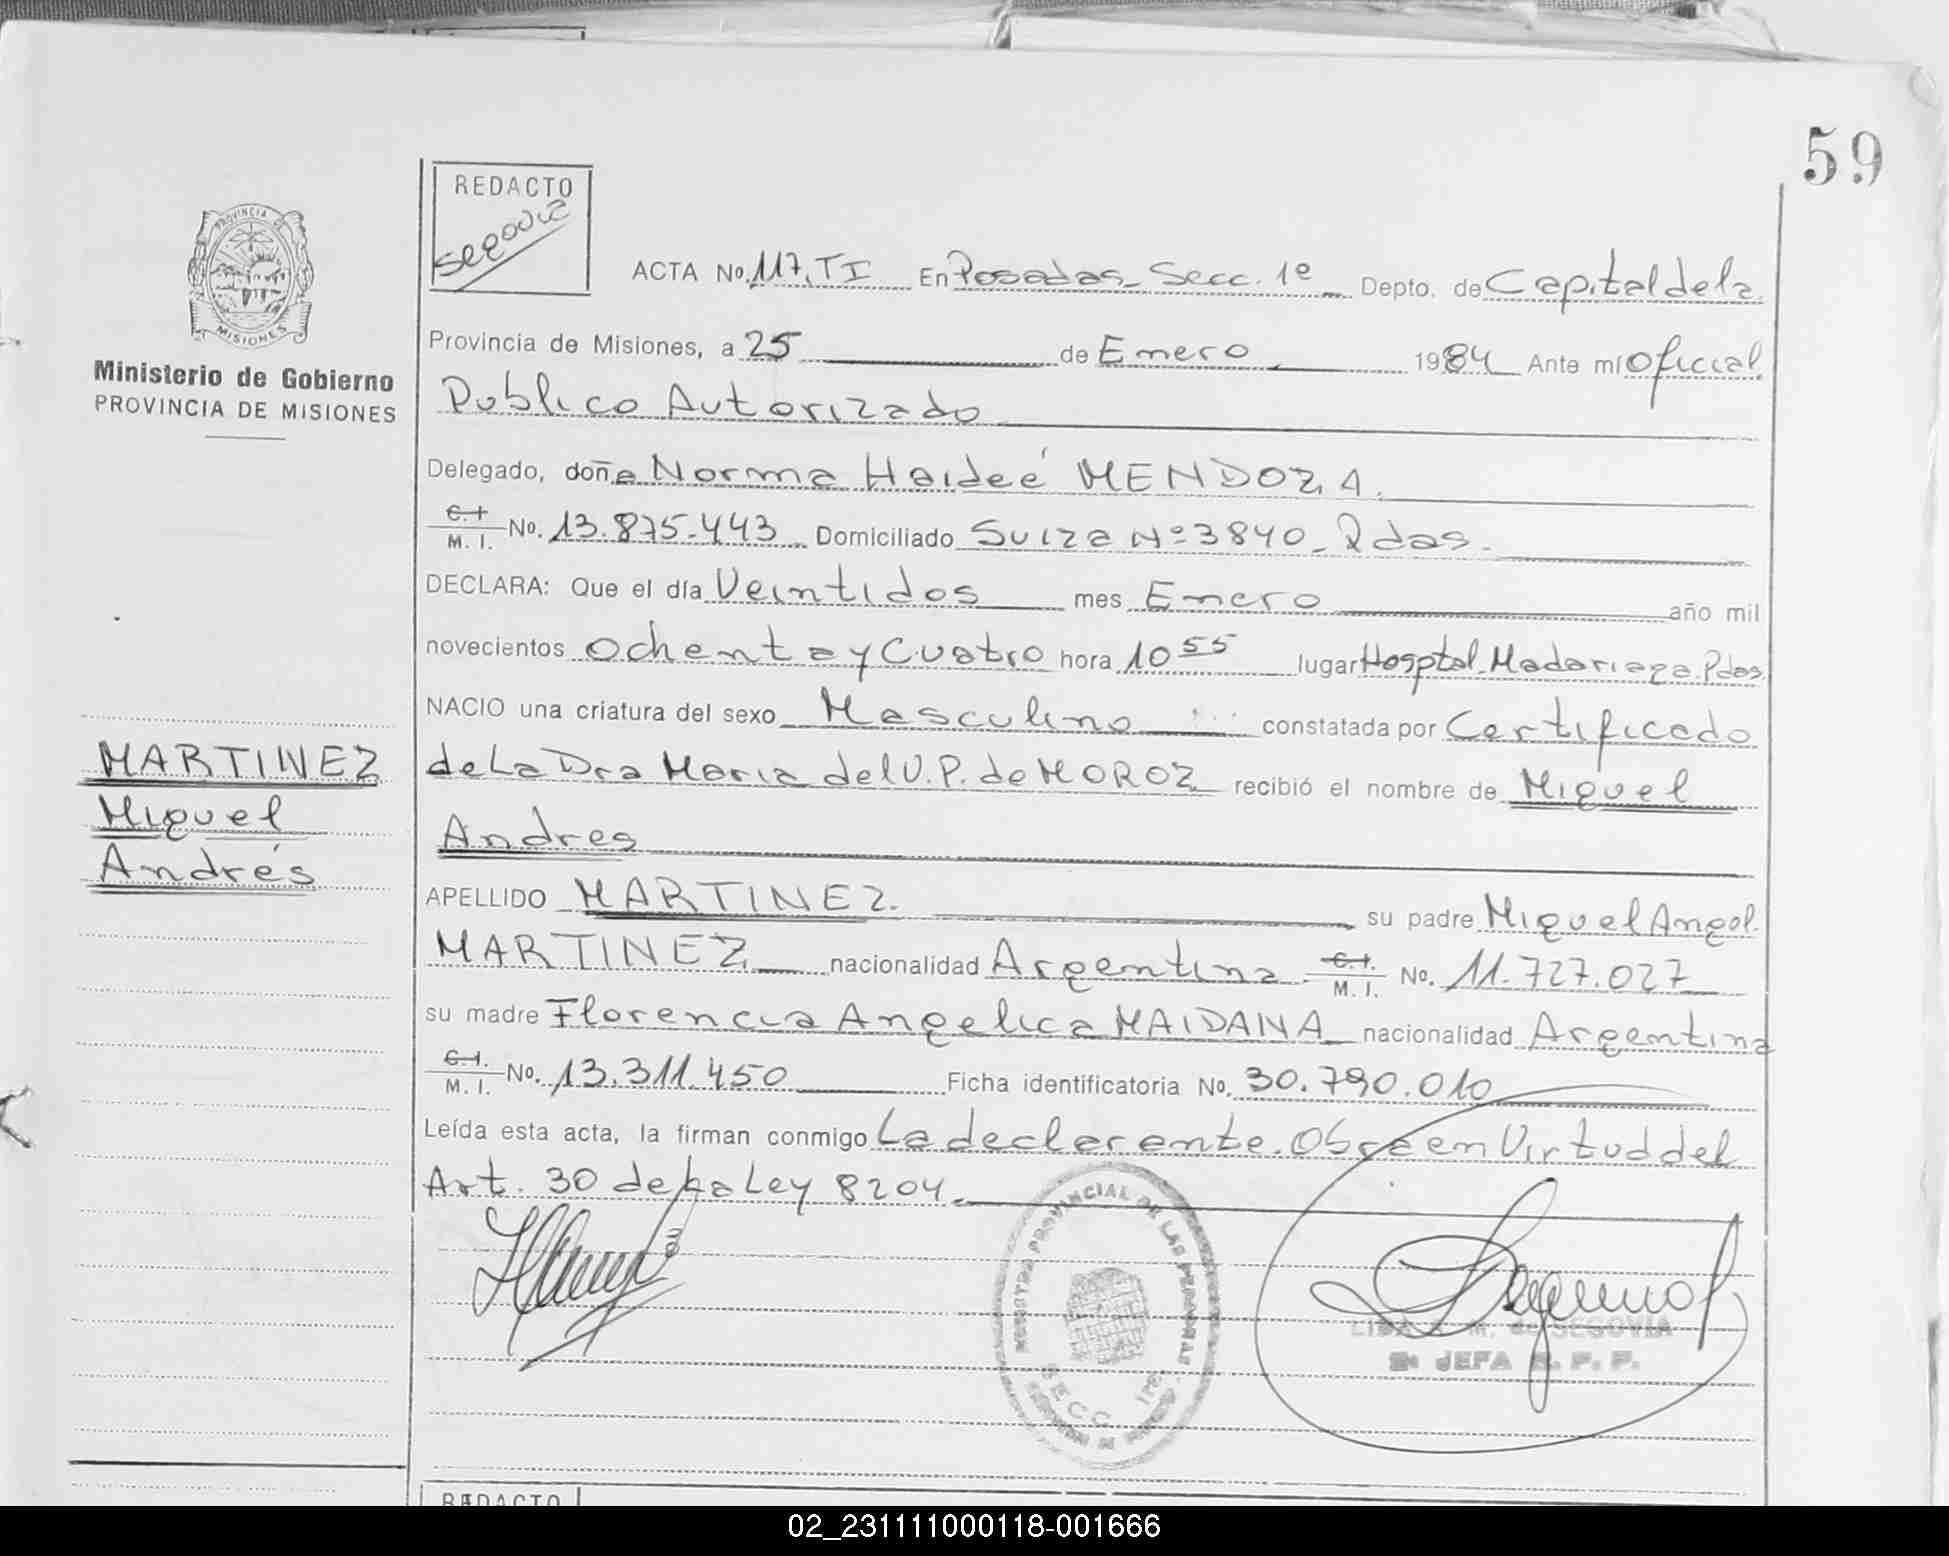 59
REDACTO
Segovia
PROVINCIA DE
MISIONES
Ministerio de Gobierno
PROVINCIA DE MISIONES
ACTA No. 117. TI En Posadas - Secc. 1º Depto. de Capital de la
Provincia de Misiones, a 25 de Enero 1984 Ante mí Oficial
Publico Autorizado
Delegado, doña Norma Haideé MENDOZA.
C.I. M. I. No. 13.875.443 Domiciliado Suiza Nº 3840 - Pdas.
DECLARA: Que el día Veintidos mes Enero año mil
novecientos ochenta y Cuatro hora 10 55 lugar Hosptal Madariaga. Pdas.
NACIO una criatura del sexo Masculino constatada por Certificado
de La Dra Maria del V. P. de MOROZ recibió el nombre de Miguel
Andres
MARTINEZ
Miguel
Andrés
APELLIDO MARTINEZ. su padre Miguel Angel.
MARTINEZ nacionalidad Argentina C.I. M. I. No. 11.727.027
su madre Florencia Angelica MAIDANA nacionalidad Argentina
C.I. M. I. No. 13.311.450 Ficha identificatoria No. 30.790.010
Leída esta acta, la firman conmigo La declarente. Obra en Virtud del
Art. 30 de La Ley 8204.
REGISTRO PROVINCIAL DE LAS PERSONAS
SECC 1ra
M. de SEGOVIA
2a JEFA
REDACTO
02_231111000118-001666